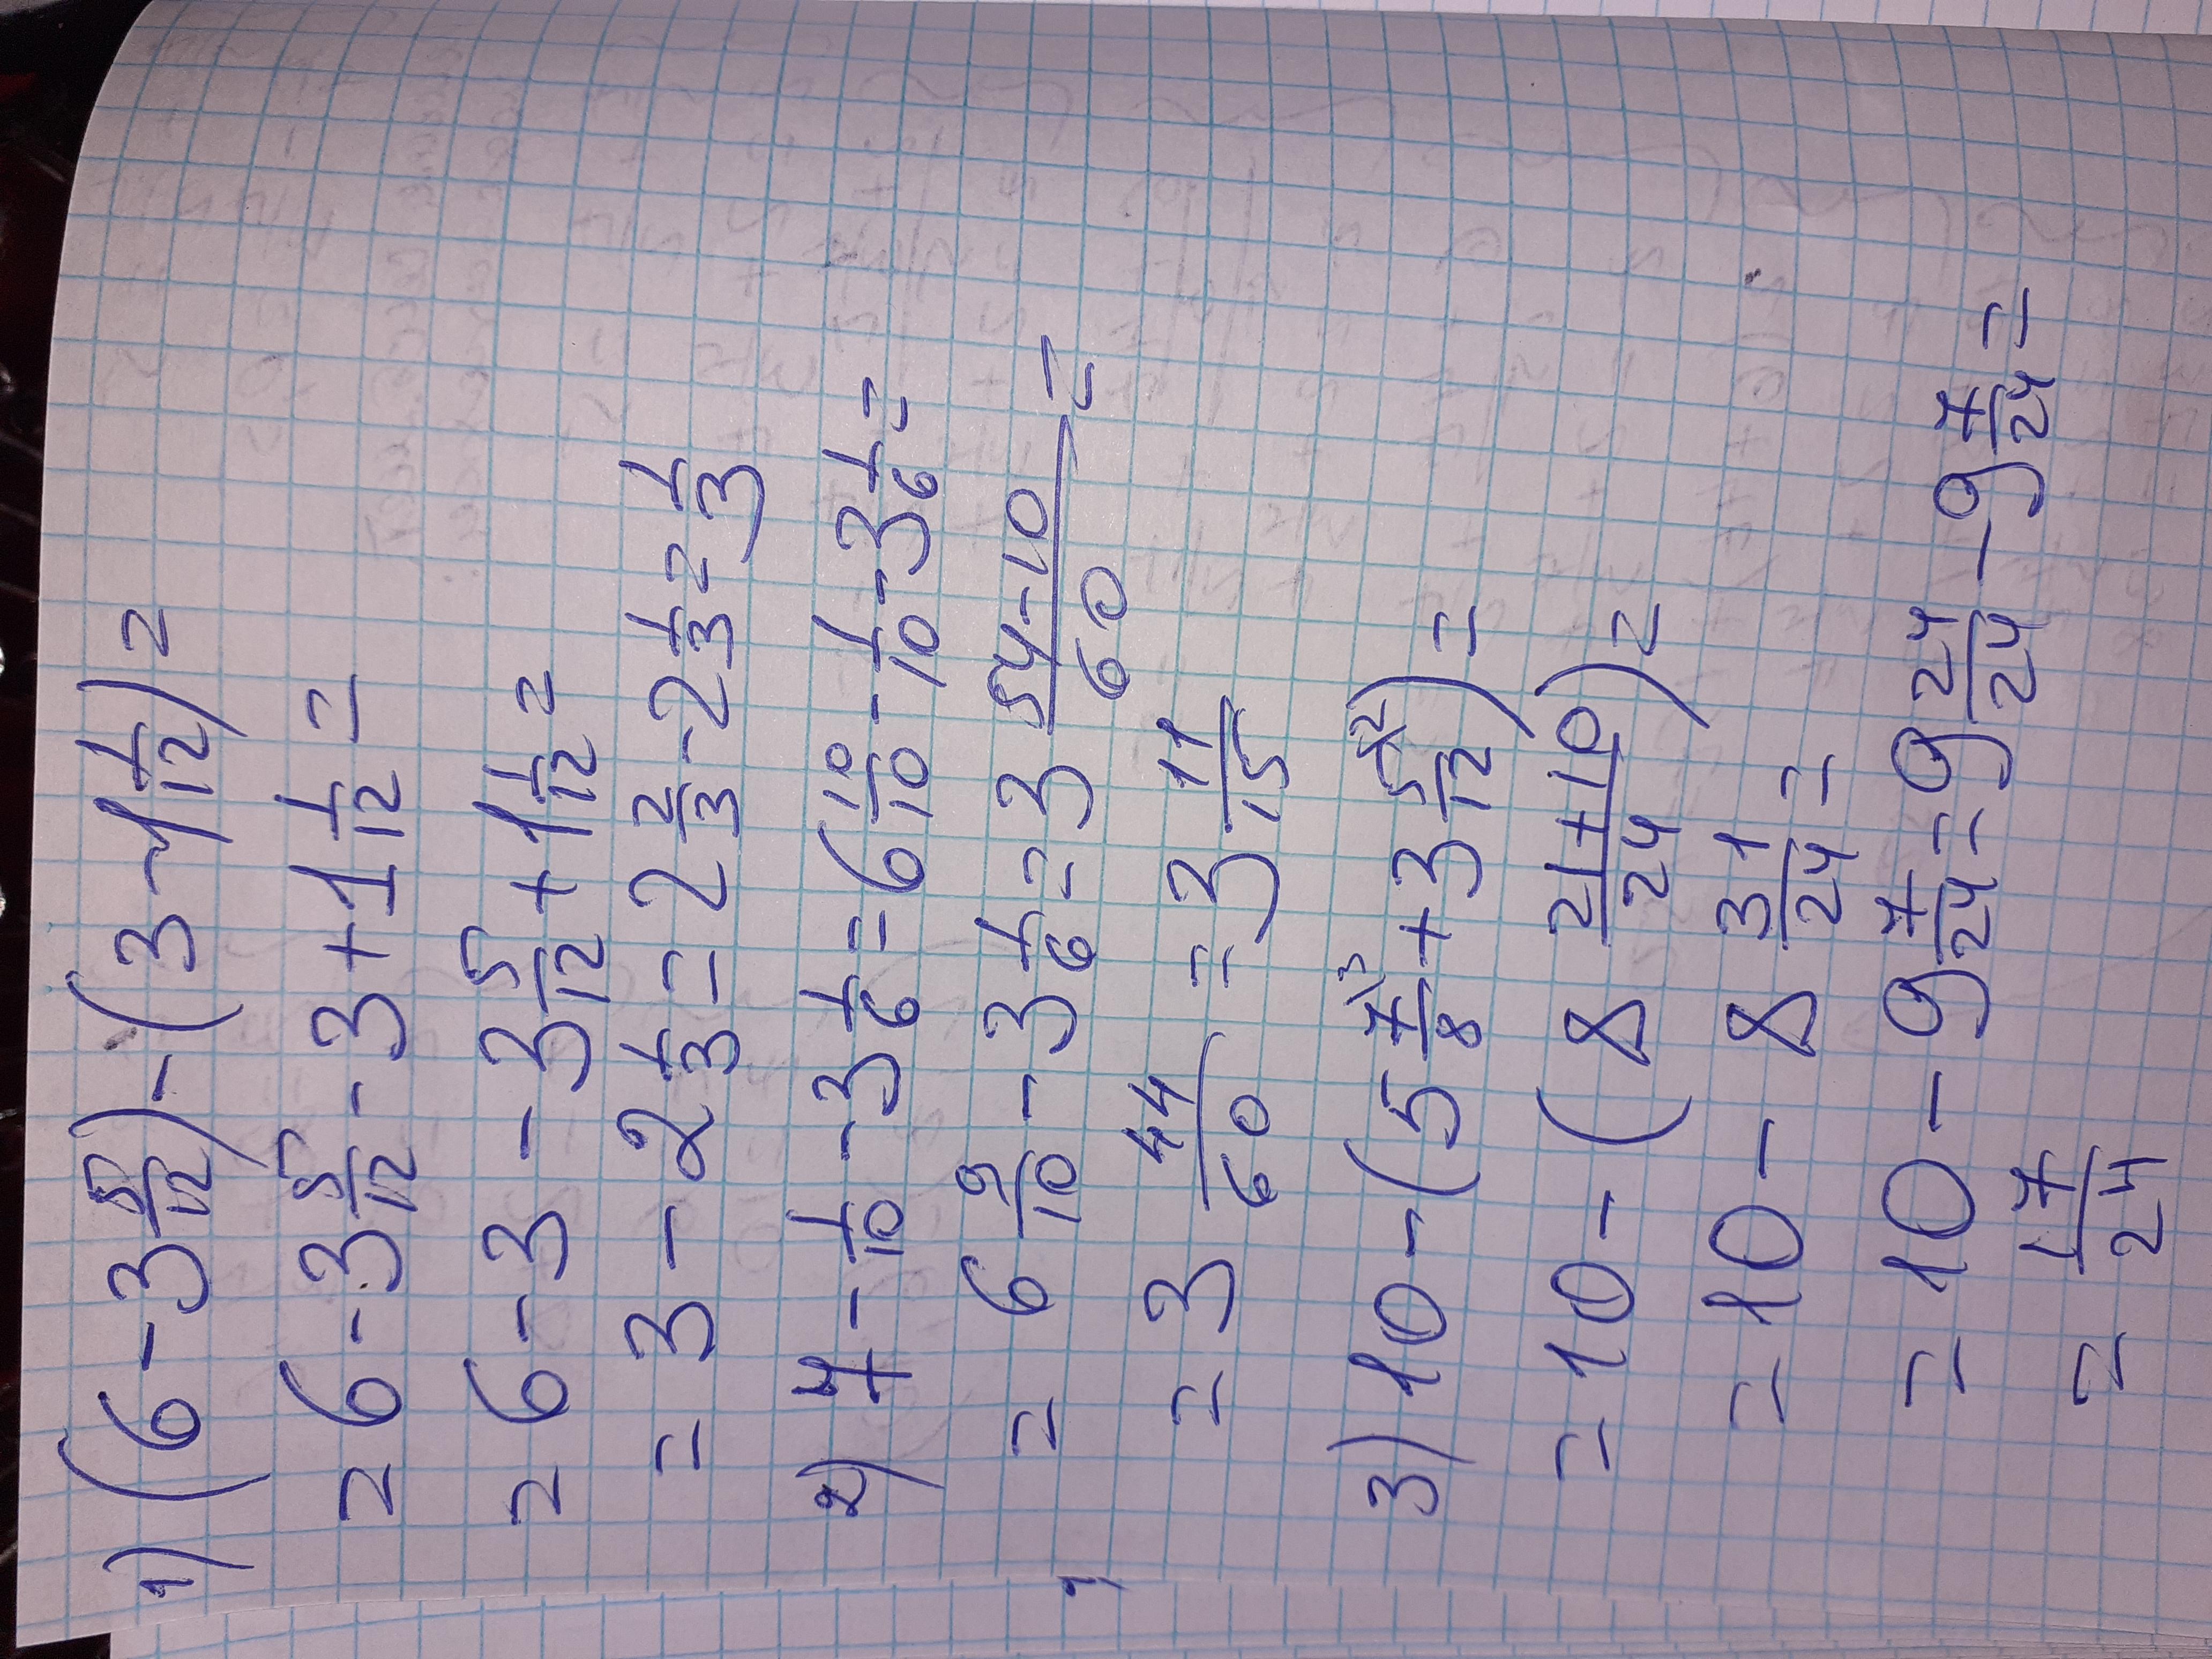 1) (6 - 3 5/12) - (3 - 1 1/12) =
= 6 - 3 5/12 - 3 + 1 1/12 =
= 6 - 3 - 3 5/12 + 1 1/12 =
= 3 - 2 1/3 = 2 2/3 - 2 1/3 = 1/3
2) 7 - 1/10 - 3 1/6 = 6 10/10 - 1/10 - 3 1/6 =
= 6 9/10 - 3 1/6 = 3 (54-10)/60 =
= 3 44/60 = 3 11/15
3) 10 - (5 7\3/8 + 3 5\2/12) =
= 10 - (8 (21+10)/24) =
= 10 - 8 31/24 =
= 10 - 9 7/24 = 9 24/24 - 9 7/24 =
= 17/24